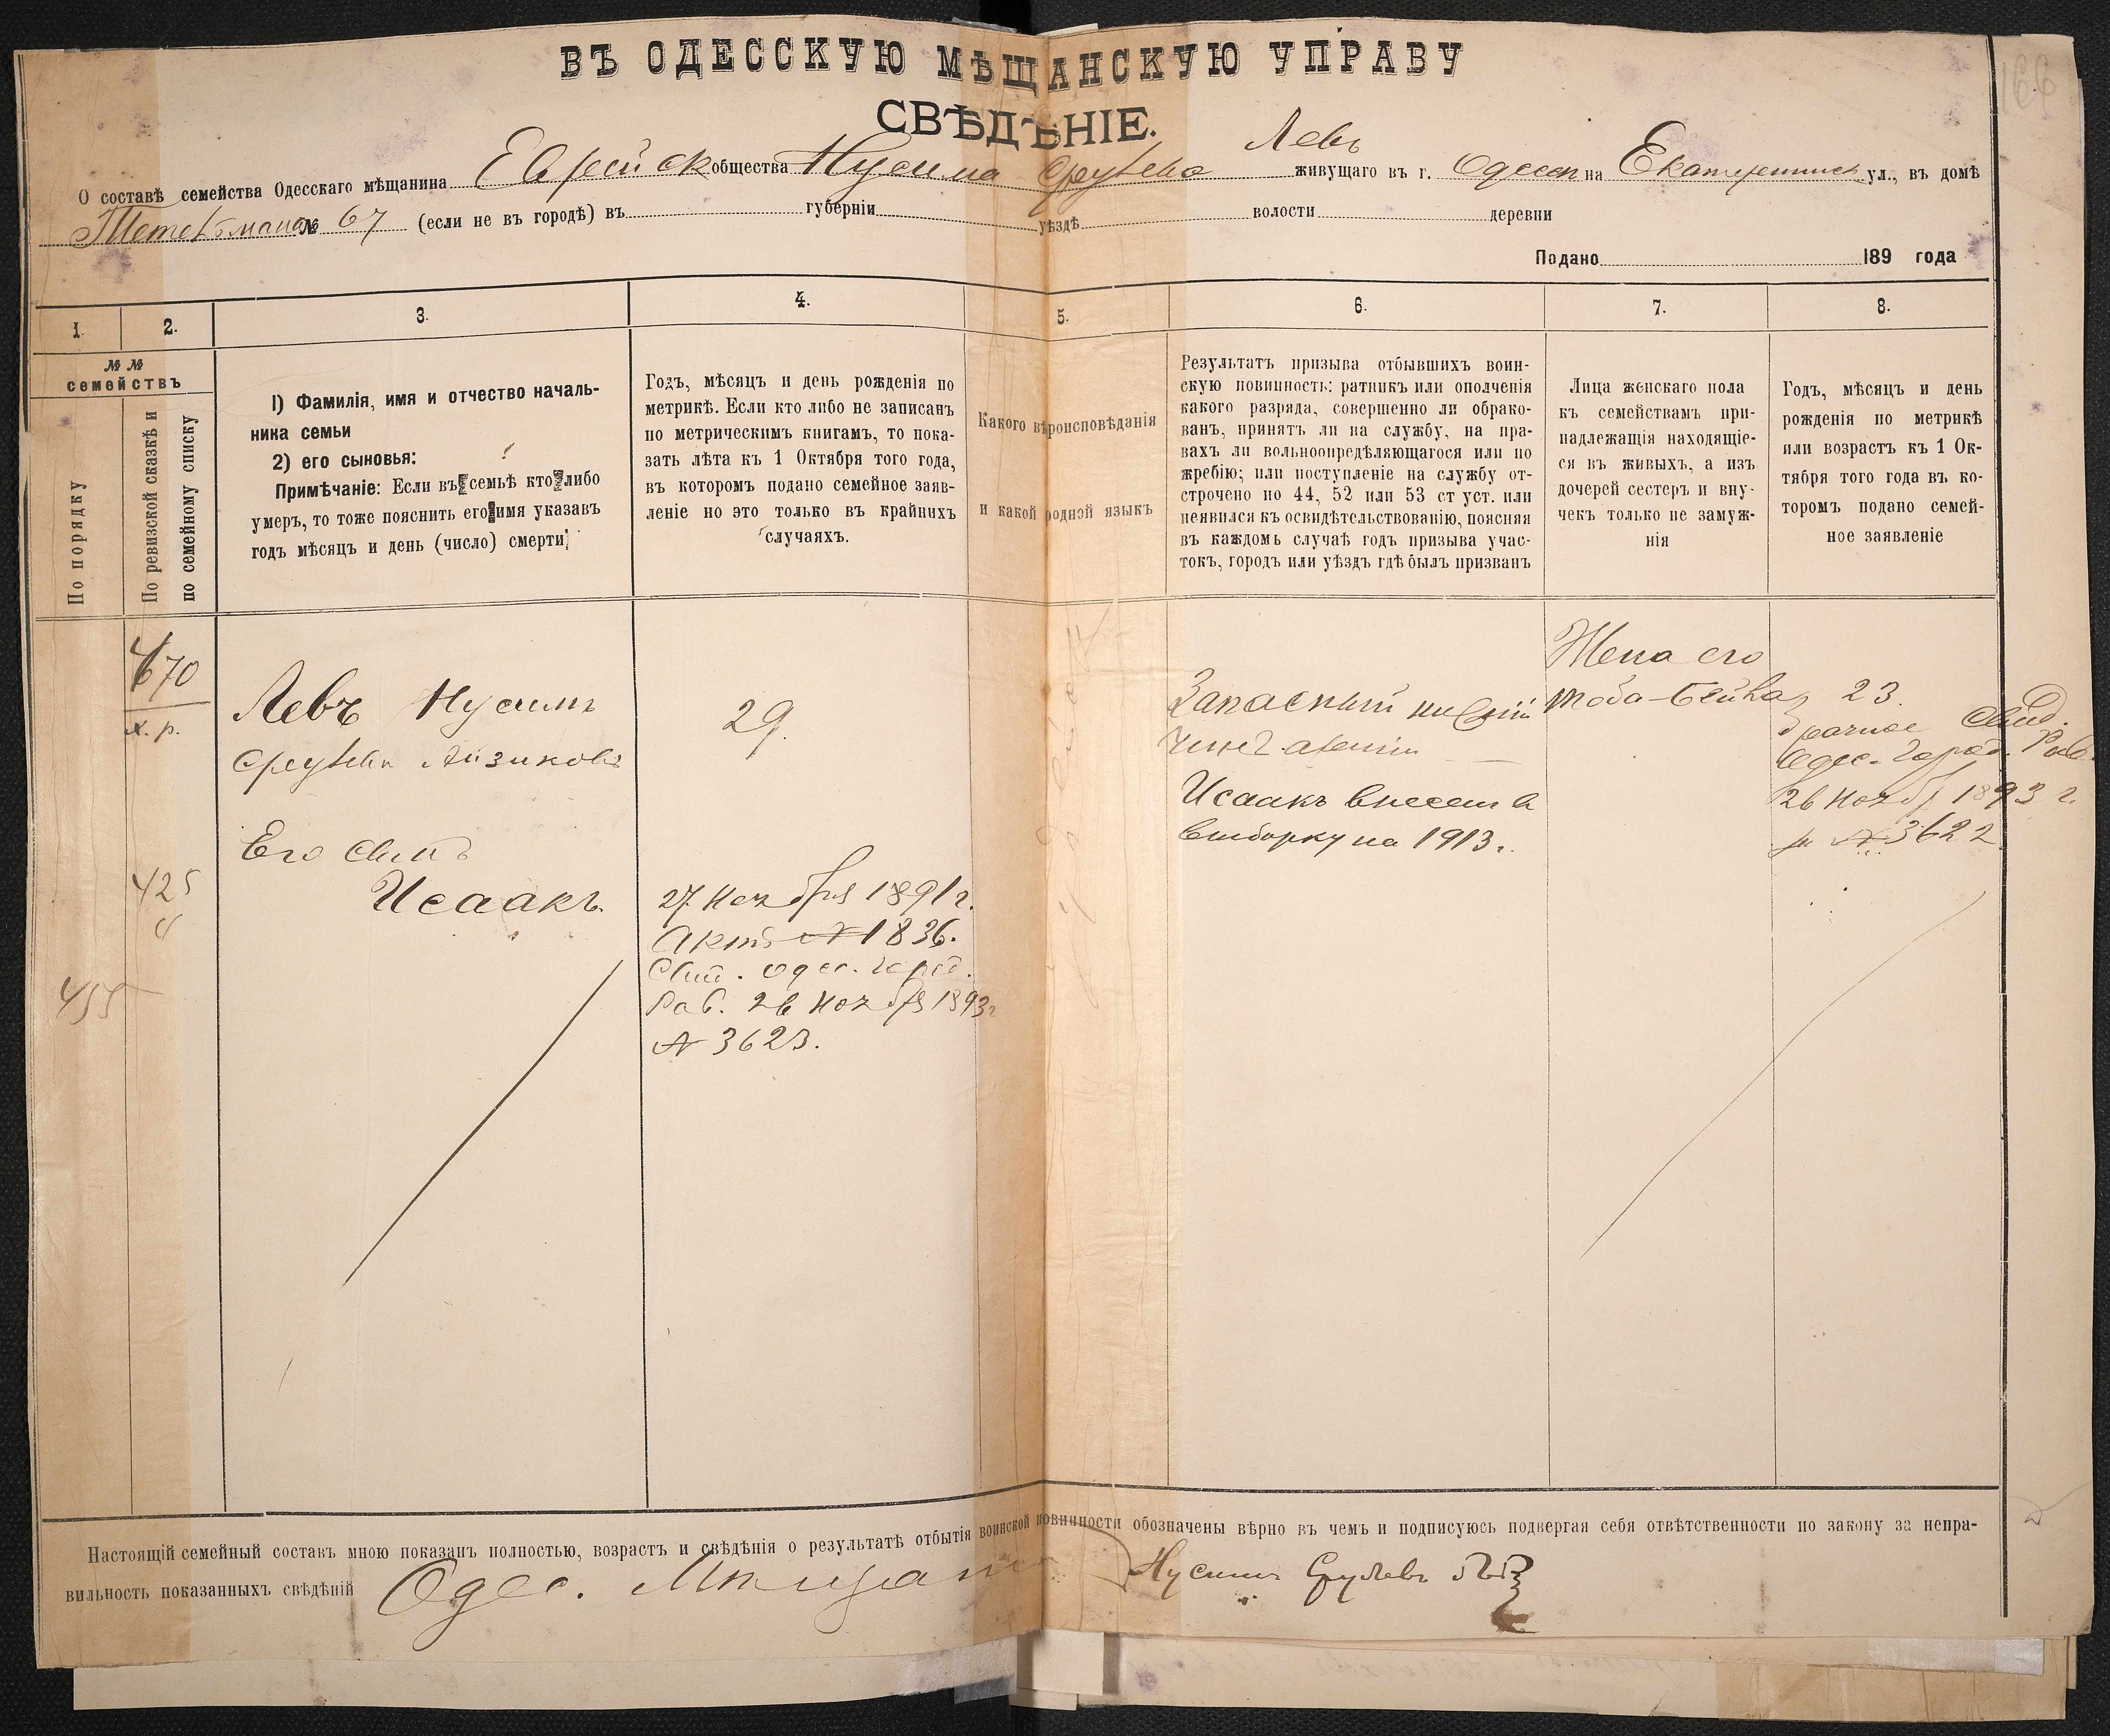 166
ВЪ ОДЕССКУЮ МѢЩАНСКУЮ УПРАВУ
СВѢДѢНІЕ.
Левъ
О составѣ семейства Одесскаго мѣщанина Еврейск общества Нусима Сруlева живущаго въ г. Одессѣ на Екатерининск ул., въ домѣ
№ 67 (если не въ городѣ) въ губерніи уѣздѣ волости деревни
Подано 189 года
1. 2. 3. 4. 5. 6. 7. 8.
№ №
семействъ
По порядку
По ревизской сказкѣ и
по семейному списку
1) Фамилія, имя и отчество началь-
ника семьи
2) его сыновья:
Примѣчаніе: Если въ семьѣ кто либо
умеръ, то тоже пояснить его имя указавъ
годъ мѣсяцъ и день (число) смерти
Годъ, мѣсяцъ и день рожденія по
метрикѣ. Если кто либо не записанъ
по метрическимъ книгамъ, то пока-
зать лѣта къ 1 Октября того года,
въ которомъ подано семейное заяв-
леніе но это только въ крайнихъ
случаяхъ.
Какого вѣроисповѣданія
и какой родной языкъ
Результатъ призыва отбывшихъ воин-
скую повинность: ратникъ или ополченія
какого разряда, совершенно ли обрако-
ванъ, принятъ ли на службу, на пра-
вахъ ли вольноопредѣляющагося или по
жребію; или поступленіе на службу от-
строчено по 44, 52 или 53 ст уст. или
неявился къ освидѣтельствованію, поясняя
въ каждомъ случаѣ годъ призыва учас-
токъ, городъ или уѣздъ гдѣ былъ призванъ
Лица женскаго пола
къ семействамъ при-
надлежащія находящіе-
ся въ живыхъ, а изъ
дочерей сестеръ и вну-
чекъ только не замуж-
нія
Годъ, мѣсяцъ и день
рожденія по метрикѣ
или возрастъ къ 1 Ок-
тября того года въ ко-
торомъ подано семей-
ное заявленіе
670
х. р.
Левъ Нусимъ
Айзиковъ
29.
Запасный нижній
чинъ арміи
Исаакъ внесенъ в
выборку на 1913 г.
Жена его
Тоба-Бейла
23
Брачное Свид.
Одес. Город. Рав.
26 Ноября 1893 г.
за № 3622
Его сынъ
Исаакъ.
425
455
27 Ноября 1891 г.
Актъ № 1836.
Свид. Одес. Город.
Рав. 26 Ноября 1893 г
№ 3623.
Еврейск
Настоящій семейный составъ мною показанъ полностью, возрастъ и свѣдѣнія о результатѣ отбытія воинской повинности обозначены вѣрно въ чемъ и подписуюсь подвергая себя отвѣтственности по закону за непра-
вильность показанныхъ свѣдѣній Одес. Мѣщан Нусимъ Срулевъ